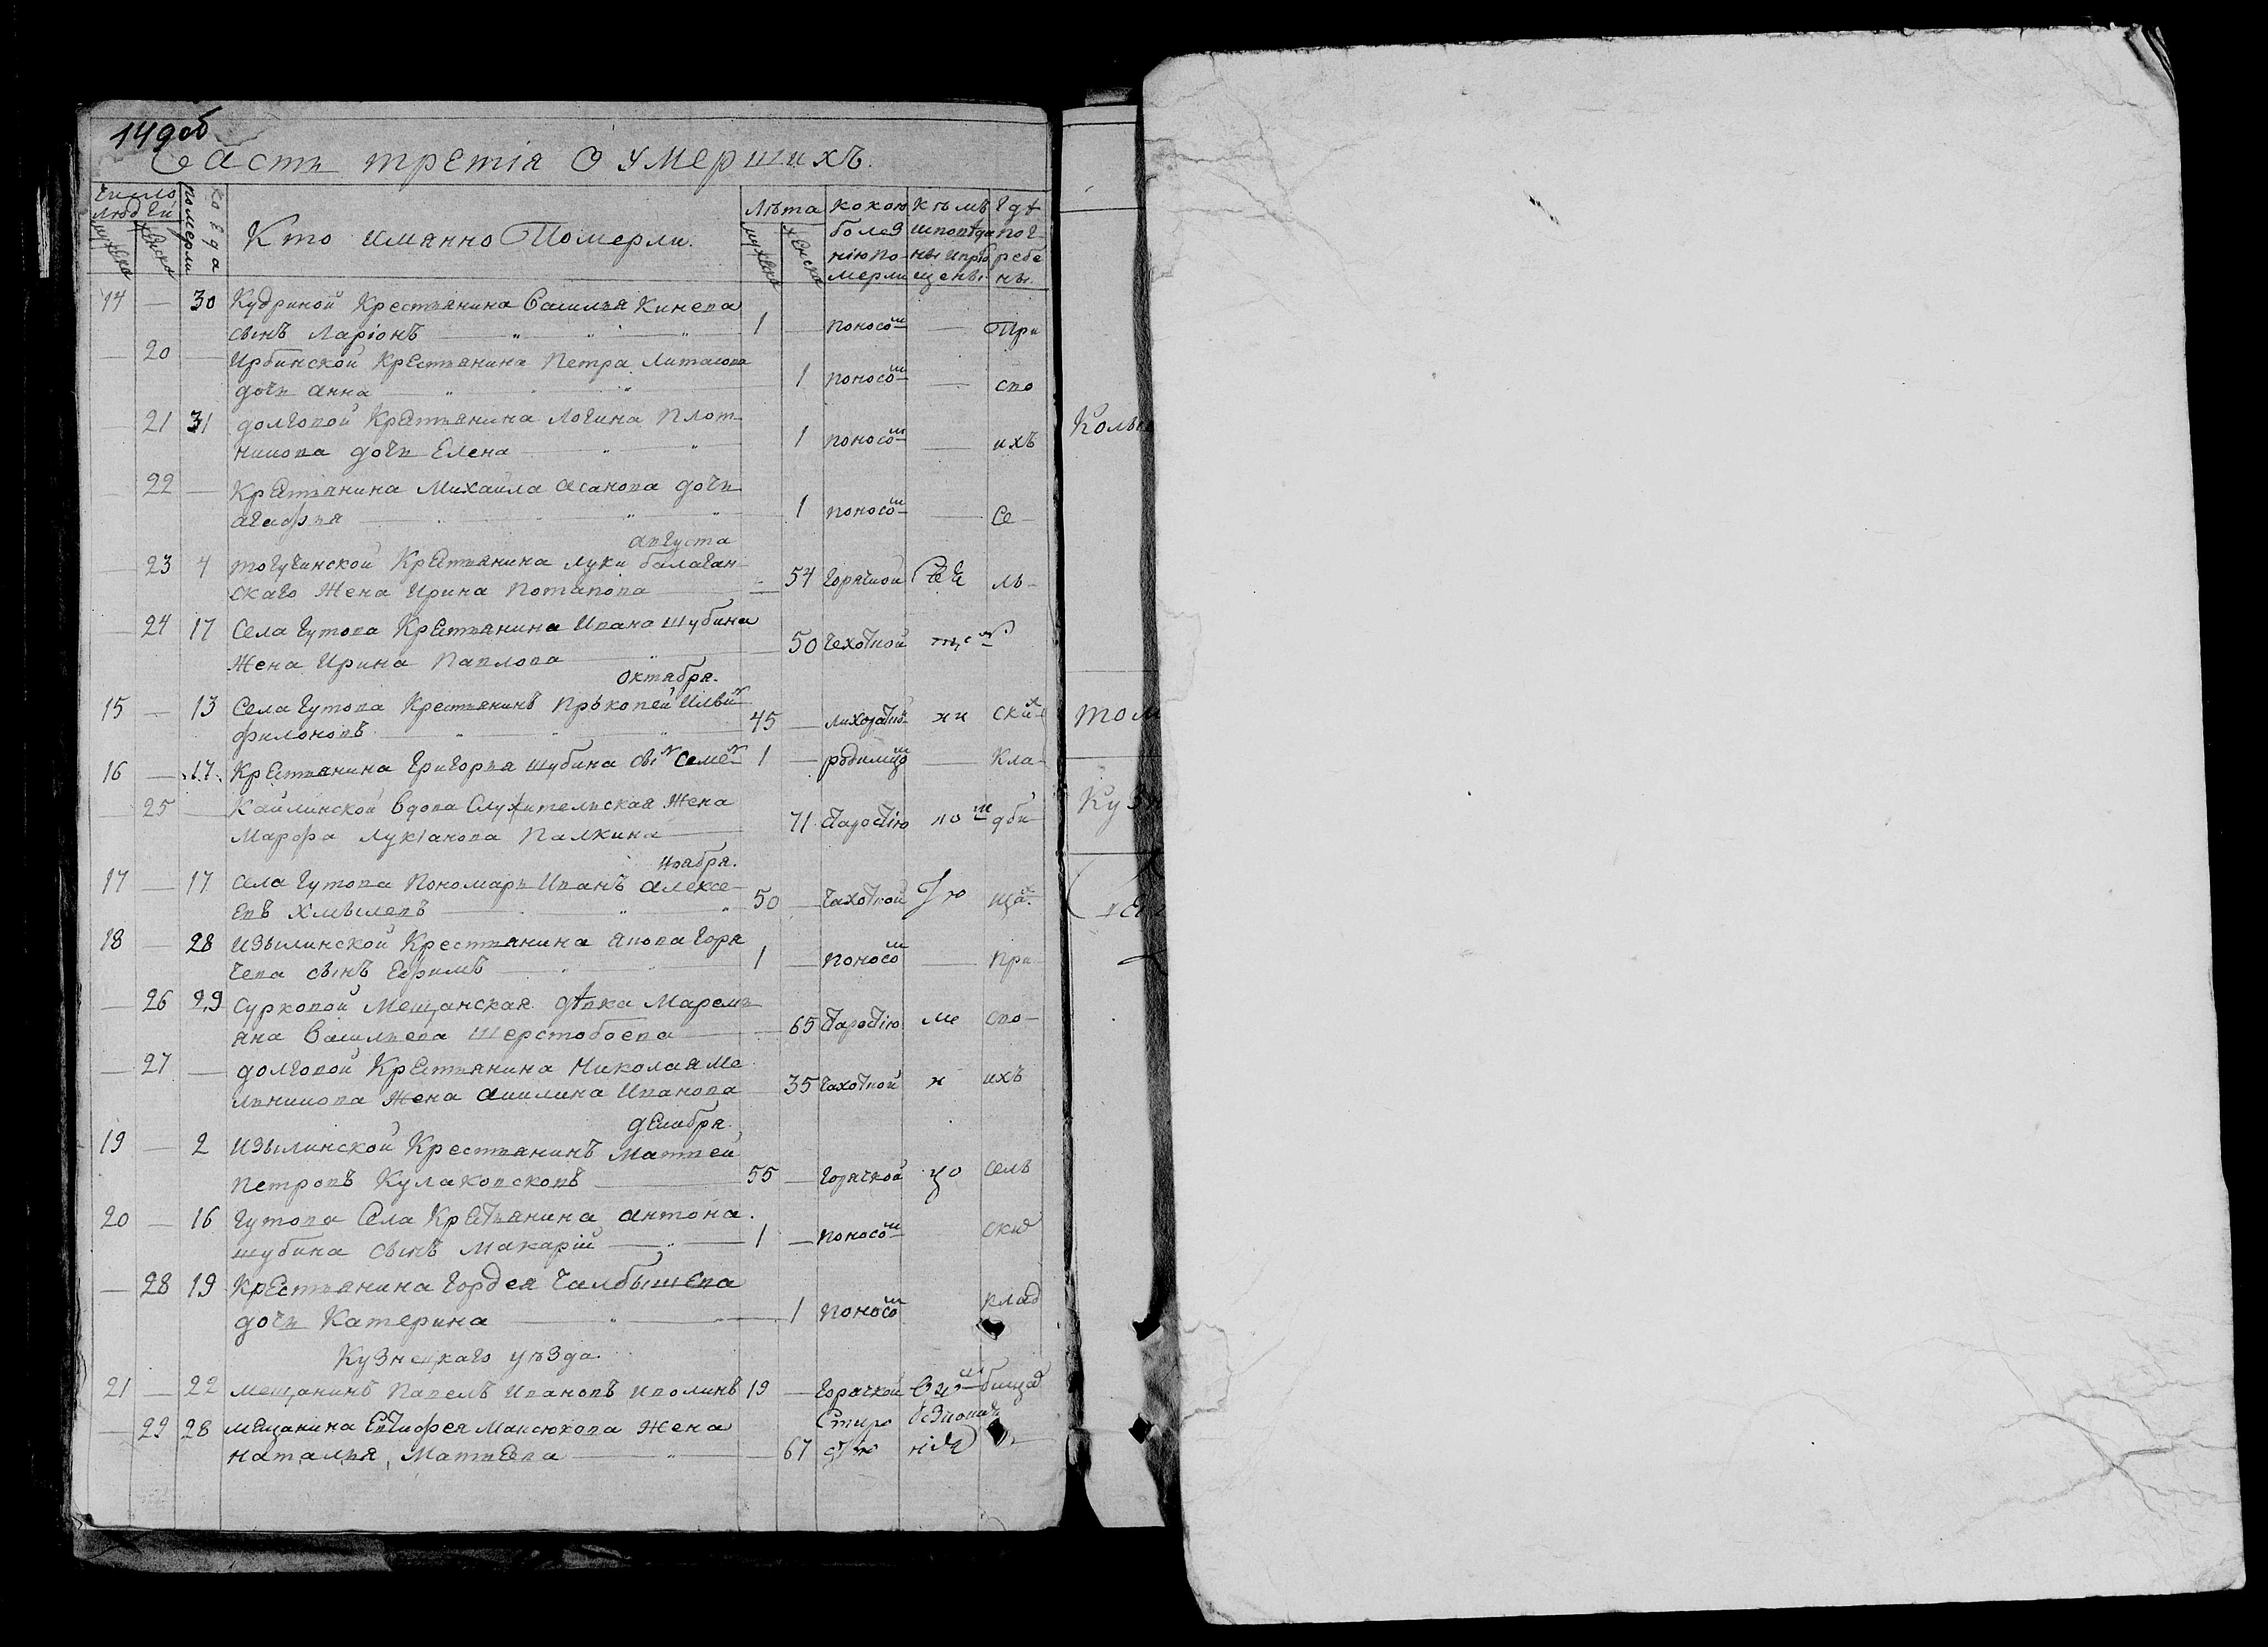 149об
Часть третія О умершихъ.
Число людей
мужеска
женска
когда померли
Кто имянно Померли.
Лѣта
мужеска
женска
какою болезнію померли
кѣмъ исповѣданы и приобщены
Гдѣ погребены
14 — 30 Кудриной Крестьянина Василья Кинева
сынъ Ларіонъ 1 — поносомъ — При
— 20 — Ирбинской Крестьянина Петра
дочь Анна 1 поносомъ — сво
— 21 31 долговой Крестьянина Логина Плот
никова дочь Елена 1 поносомъ — ихъ
— 22 — Крестьянина Михаила Асанова дочь
Агафья 1 поносомъ — се
августа
— 23 4 тогучинской Крестьянина луки балаган
скаго Жена Ирина Потапова — 54 горячкой ль
— 24 17 Села Гутова Крестьянина Ивана шубина
Жена Ирина Павлова — 50 чехоткой
Октября.
15 — 13 Села Гутова Крестьянинъ Пркопей Ильинъ
филоновъ 45 — ски
16 — 17 Крестьянина Григорья шубина сынъ Семенъ 1 — родимцомъ — кла
— 25 — Кайлинской вдова Служительская Жена
Марфа Лукіанова Палкина 71 старостію дби
Ноября.
17 — 17 Села Гутова Пономарь Иванъ Алексе
евъ Хмылевъ 50 — чахоткой ща
18 — 28 Изылинской Крестьянина Якова Горя
чева сынъ Ефимъ 1 — поносомъ — при
— 26 29 Сурковой Мещанская дѣвка Маремь
яна Васильева Шерстобоева — 65 старостію сво
— 27 — долговой Крестьянина Николая Ме
льникова Жена Акилина Иванова 35 чахоткой ихъ
декабря.
19 — 2 Изылинской Крестьянинъ Матвей
Петровъ Кулаковсковъ 55 — горячкой сель
20 — 16 Гутова Села Крестьянина Антона
шубина сынъ Макарій 1 — поносомъ ски
— 28 19 Крестьянина Гордея Чалбышева
дочь Катерина 1 поносомъ клад
Кузнецкаго уѣзда.
21 — 22 мещанинъ Павелъ Ивановъ Иполинъ 19 — горячкой бища
— 29 28 мещанина Евтифея Максюкова Жена
Наталья Матвеева — 67 старостію